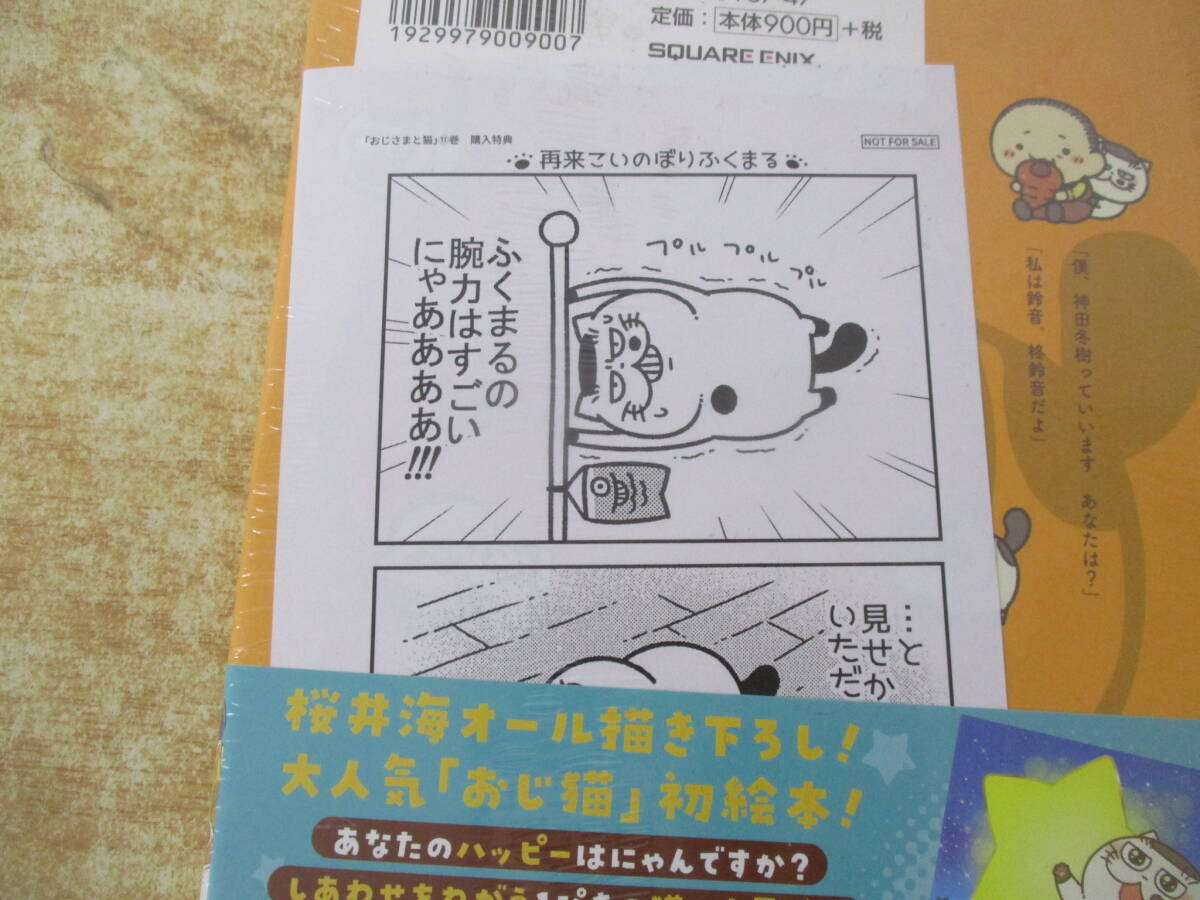 1929979009007
定価：本体900円＋税
SQUARE ENIX
「おじさまと猫」⑩巻　購入特典
NOT FOR SALE
再来こいのぼりふくまる
ふくまるの
腕力はすごい
にゃああああ!!!
プル プル プル
…と
見せか
いただ
「僕、神田冬樹っていいます。あなたは？」
「私は鈴音。柊鈴音だよ」
桜井海オール描き下ろし！
大人気「おじ猫」初絵本！
あなたのハッピーはにゃんですか？
しあわせをねがう1ぴきの猫